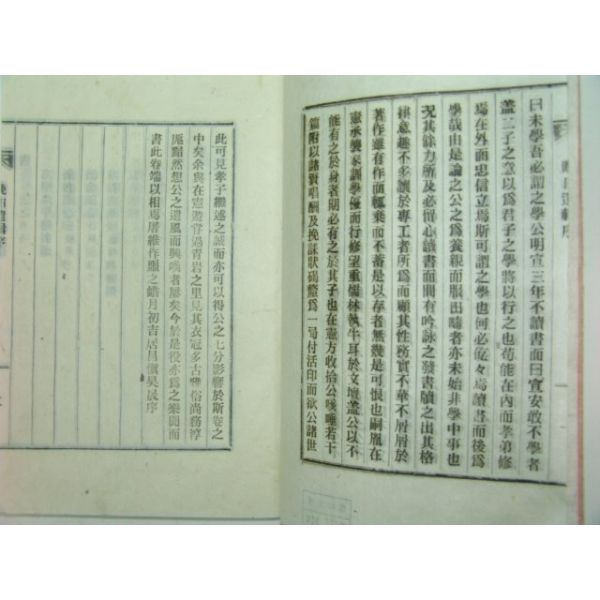 曰未學吾必謂之學公明宣三年不讀書而曰宣安敢不學者
蓋二子之意以爲君子之學將以行之也苟能在內而孝弟修
焉在外而忠信立焉斯可謂之學也何必屹々焉讀書而後爲
學哉由是論之公之爲養親而服田疇者亦未始非學中事也
況其餘力所及必留心讀書而間有吟詠之發書牘之出其格
律意趣不多讓於專工者所爲而顧其性務實不華不屑屑於
著作雖有作而輒棄而不蓄是以存者無幾是可恨也嗣胤在
憲承襲家訓學優而行修望重儒林執牛耳於文壇蓋公以不
能有之於身者期必有之於其子也在憲方收拾公咳唾若干
篇附以諸賢唱酬及挽誄狀碣釐爲一局付活印而欲公諸世
此可見孝子繼述之誠而亦可以得公之七分影響於斯卷之
中矣余與在憲遊嘗過靑岩之里見其衣冠多古雙俗尚務淳
厖黯然想公之遺風而興嘆者屢矣今於是役亦爲之樂聞而
書此卷端以相焉屠維作噩之皓月初吉居昌愼昊晟序